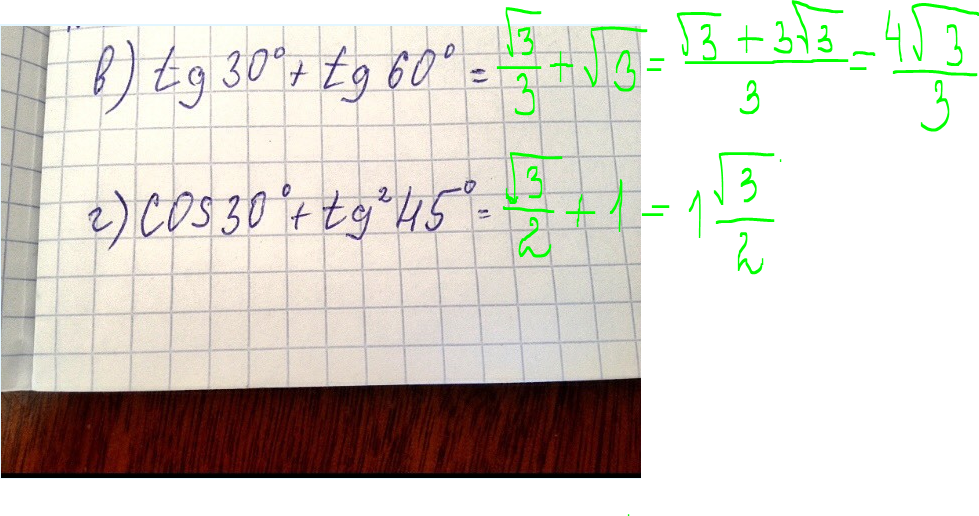 в) tg 30° + tg 60° = √3/3 + √3 = (√3 + 3√3)/3 = 4√3/3
г) cos 30° + tg² 45° = √3/2 + 1 = 1 √3/2